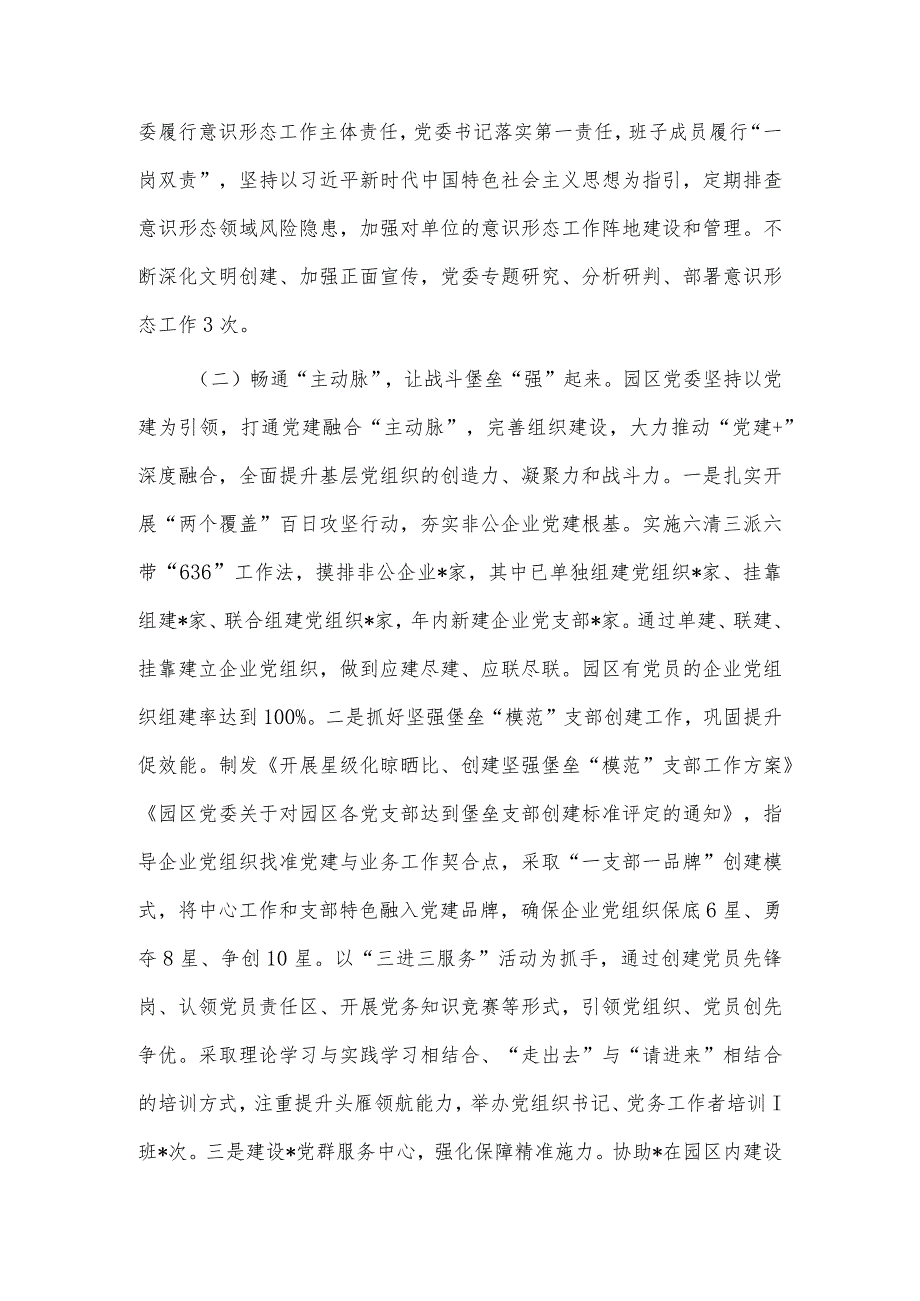 委履行意识形态工作主体责任，党委书记落实第一责任，班子成员履行“一
岗双责”，坚持以习近平新时代中国特色社会主义思想为指引，定期排查
意识形态领域风险隐患，加强对单位的意识形态工作阵地建设和管理。不
断深化文明创建、加强正面宣传，党委专题研究、分析研判、部署意识形
态工作3次。
（二）畅通“主动脉”，让战斗堡垒“强”起来。园区党委坚持以党
建为引领，打通党建融合“主动脉”，完善组织建设，大力推动“党建+”
深度融合，全面提升基层党组织的创造力、凝聚力和战斗力。一是扎实开
展“两个覆盖”百日攻坚行动，夯实非公企业党建根基。实施六清三派六
带“636”工作法，摸排非公企业*家，其中已单独组建党组织*家、挂靠
组建*家、联合组建党组织*家，年内新建企业党支部*家。通过单建、联建、
挂靠建立企业党组织，做到应建尽建、应联尽联。园区有党员的企业党组
织组建率达到100%。二是抓好坚强堡垒“模范”支部创建工作，巩固提升
促效能。制发《开展星级化晾晒比、创建坚强堡垒“模范”支部工作方案》
《园区党委关于对园区各党支部达到堡垒支部创建标准评定的通知》，指
导企业党组织找准党建与业务工作契合点，采取“一支部一品牌”创建模
式，将中心工作和支部特色融入党建品牌，确保企业党组织保底6星、勇
夺8星、争创10星。以“三进三服务”活动为抓手，通过创建党员先锋
岗、认领党员责任区、开展党务知识竞赛等形式，引领党组织、党员创先
争优。采取理论学习与实践学习相结合、“走出去”与“请进来”相结合
的培训方式，注重提升头雁领航能力，举办党组织书记、党务工作者培训I
班*次。三是建设*党群服务中心，强化保障精准施力。协助*在园区内建设